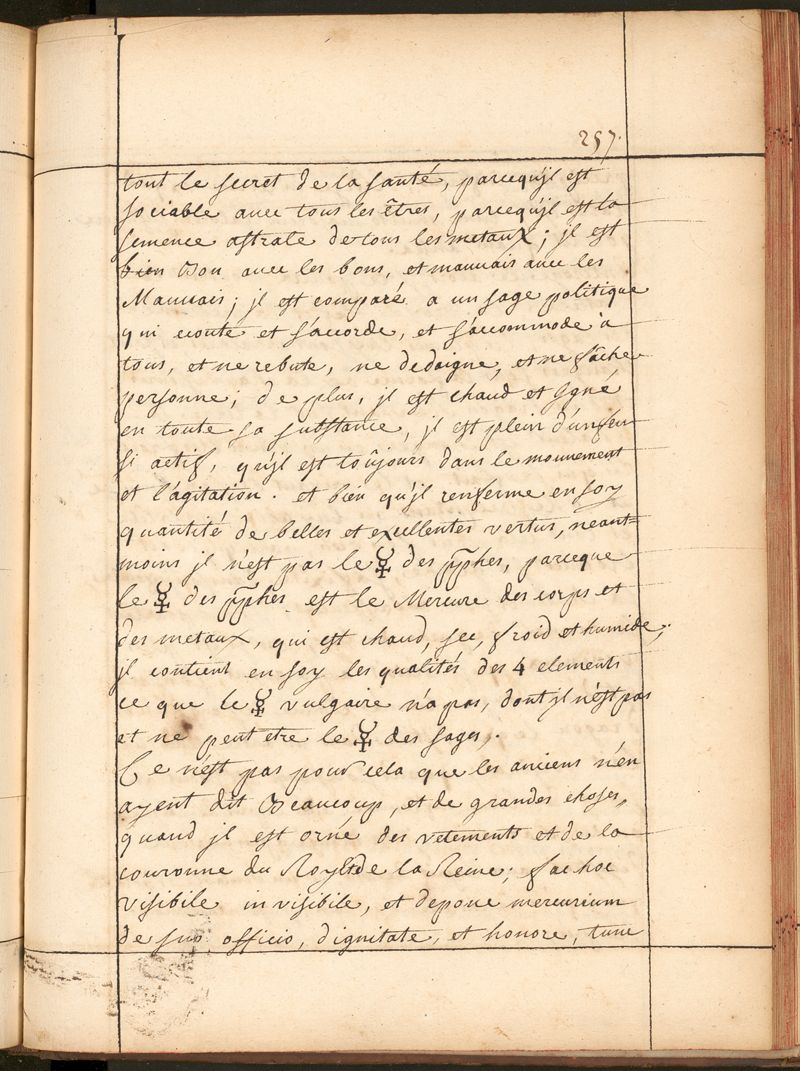 257.
tout le secret de la santé, parcequ'jl est
sociable avec tous les êtres, parcequ'jl est la
semence astrale de tous les metaux; jl est
bien Bon avec les bons, et mauvais avec les
Mauvais; jl est comparé a un sage politique
qui ecoute et s'accorde, et s'accommode à
tous, et ne rebute, ne dedaigne, et ne fâche
personne; de plus, jl est chaud et jgné
en toute sa substance, jl est plein d'un feu
si actif, qu'jl est toûjours dans le mouvement
et l'agitation. et bien qu'jl renferme en soy
quantité de belles et excellentes vertus, néant=
moins jl n'est pas le ☿ des pphes, parceque
le ☿ des pphes est le Mercure des corps et
des metaux, qui est chaud, sec, froid et humide,
jl contient en soy les qualités des 4 elements
ce que le ☿ vulgaire n'a pas, dont jl n'est pas
et ne peut etre le ☿ des sages,.
Ce n'est pas pour cela que les anciens n'en
ayent dit Beaucoup, et de grandes choses,
quand jl est orné des vetements et de la
couronne du Roy et de la Reine; fac hoc
visibile invisibile, et depone mercurium
de suo officio, dignitate, et honore, tunc